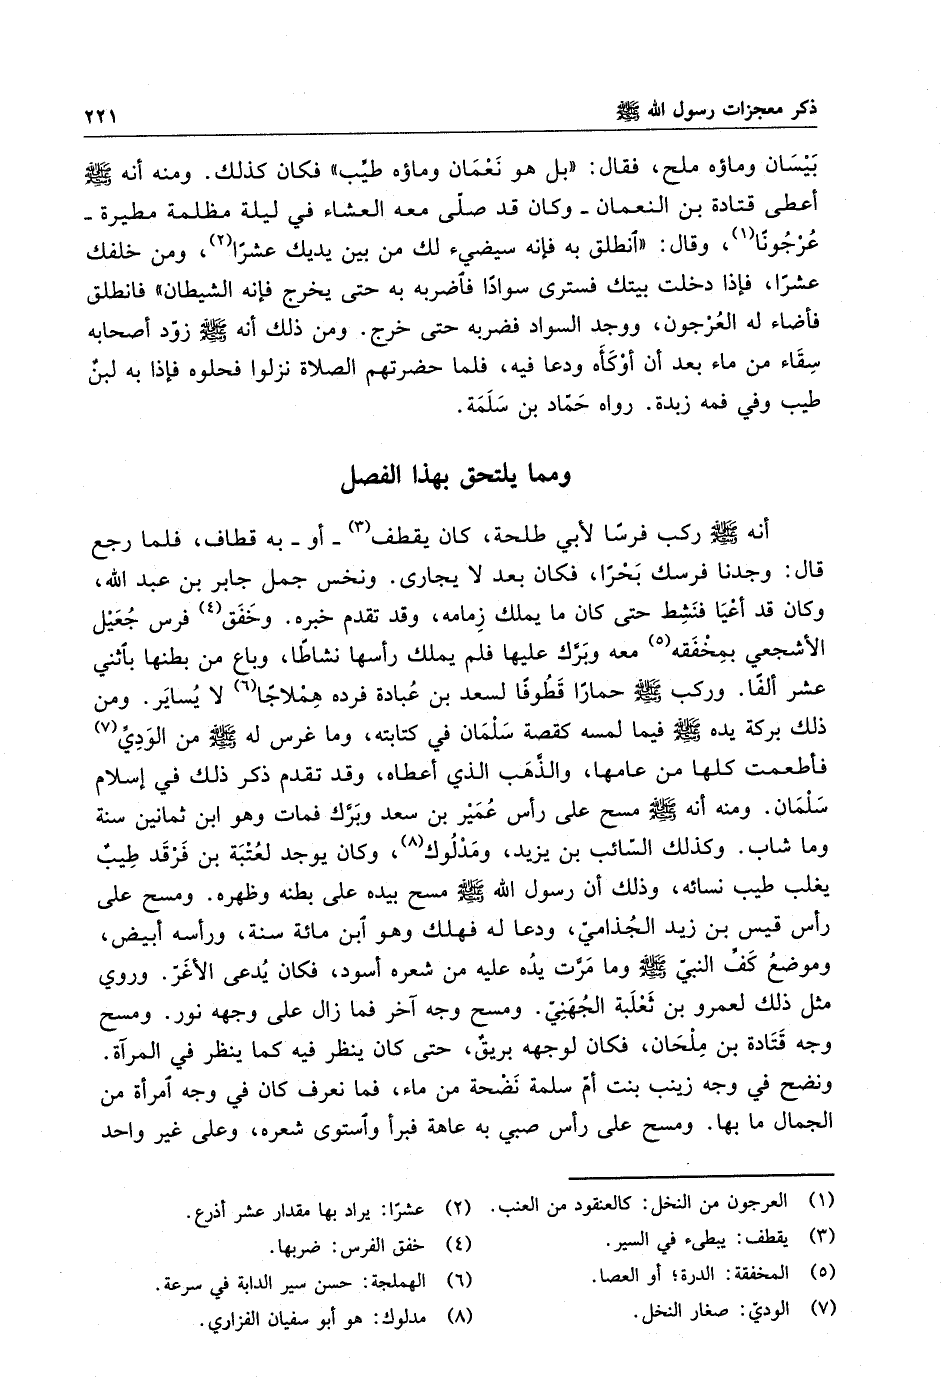 ذكر معجزات رسول الله ﷺ ٢٢١
بَيْسَان وماؤه ملح، فقال: «بل هو نَعْمَان وماؤه طيِّب» فكان كذلك. ومنه أنه ﷺ
أعطى قتادة بن النعمان ـ وكان قد صلّى معه العشاء في ليلة مظلمة مطيرة ـ
عُرْجُونًا(١)، وقال: «ٱنطلق به فإنه سيضيء لك من بين يديك عشرًا(٢)، ومن خلفك
عشرًا، فإذا دخلت بيتك فسترى سوادًا فٱضربه به حتى يخرج فإنه الشيطان» فانطلق
فأضاء له العُرْجون، ووجد السواد فضربه حتى خرج. ومن ذلك أنه ﷺ زوّد أصحابه
سِقَاء من ماء بعد أن أوْكَأَه ودعا فيه، فلما حضرتهم الصلاة نزلوا فحلوه فإذا به لبنٌ
طيب وفي فمه زبدة. رواه حَمّاد بن سَلَمَة.
ومما يلتحق بهذا الفصل
أنه ﷺ ركب فرسًا لأبي طلحة، كان يقطف(٣) ـ أو ـ به قطاف، فلما رجع
قال: وجدنا فرسك بَحْرًا، فكان بعد لا يجارى. ونخس جمل جابر بن عبد الله،
وكان قد أعْيَا فنَشِط حتى كان ما يملك زِمامه، وقد تقدم خبره. وخَفَق(٤) فرس جُعَيْل
الأشجعي بمِخْفَقه(٥) معه وبَرَّك عليها فلم يملك رأسها نشاطًا، وباع من بطنها بٱثني
عشر ألفًا. وركب ﷺ حمارًا قَطُوفًا لسعد بن عُبادة فرده هِمْلاجًا(٦) لا يُسايَر. ومن
ذلك بركة يده ﷺ فيما لمسه كقصة سَلْمَان في كتابته، وما غرس له ﷺ من الوَدِيِّ(٧)
فأطعمت كلها من عامها، والذَّهَب الذي أعطاه، وقد تقدم ذكر ذلك في إسلام
سَلْمَان. ومنه أنه ﷺ مسح على رأس عُمَيْر بن سعد وبَرَّك فمات وهو ابن ثمانين سنة
وما شاب. وكذلك السّائب بن يزيد، ومَدْلُوك(٨)، وكان يوجد لعُتْبَة بن فَرْقَد طِيبٌ
يغلب طيب نسائه، وذلك أن رسول الله ﷺ مسح بيده على بطنه وظهره. ومسح على
رأس قيس بن زيد الجُذاميّ، ودعا له فهلك وهو ٱبن مائة سنة، ورأسه أبيض،
وموضعُ كَفِّ النبيّ ﷺ وما مَرَّت يدُه عليه من شعره أسود، فكان يُدعى الأغَرّ. وروي
مثل ذلك لعمرو بن ثَعْلَبة الجُهَنِيّ. ومسح وجه آخر فما زال على وجهه نور. ومسح
وجه قَتَادة بن مِلْحَان، فكان لوجهه بريقٌ، حتى كان ينظر فيه كما ينظر في المرآة.
ونضح في وجه زينب بنت أمّ سلمة نَضْحة من ماء، فما نعرف كان في وجه ٱمرأة من
الجمال ما بها. ومسح على رأس صبي به عاهة فبرأ وٱستوى شعره، وعلى غير واحد
(١) العرجون من النخل: كالعنقود من العنب. (٢) عشرًا: يراد بها مقدار عشر أذرع.
(٣) يقطف: يبطىء في السير. (٤) خفق الفرس: ضربها.
(٥) المخفقة: الدرة؛ أو العصا. (٦) الهملجة: حسن سير الدابة في سرعة.
(٧) الوديّ: صغار النخل. (٨) مدلوك: هو أبو سفيان الفزاري.